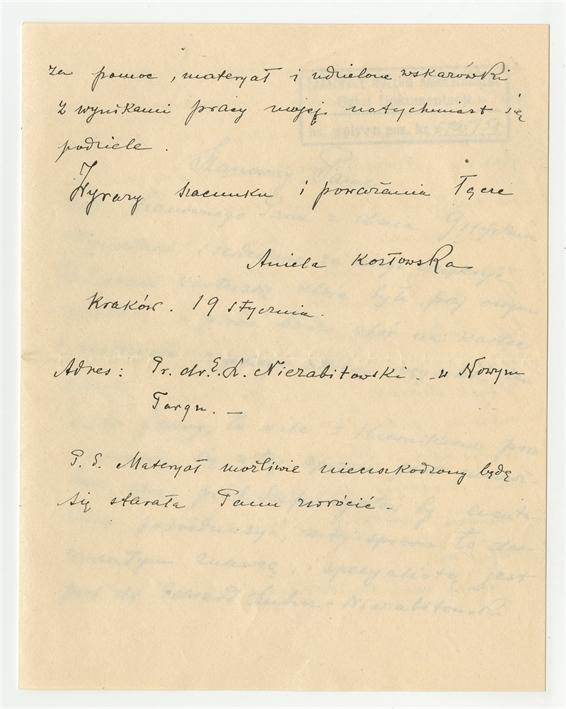 za pomoc, materyał i udzielone wskazówki
z wynikami pracy mojej natychmiast się
podziele.
Wyrazy szacunku i poważania łącze
Aniela Kozłowska
Kraków. 19 stycznia.
Adres: Pr. dr. E. L. Niezabitowski. w Nowym
Targu. —
P. S. Materyał możliwie nieuszkodzony będę
się starała Panu zwrócić.